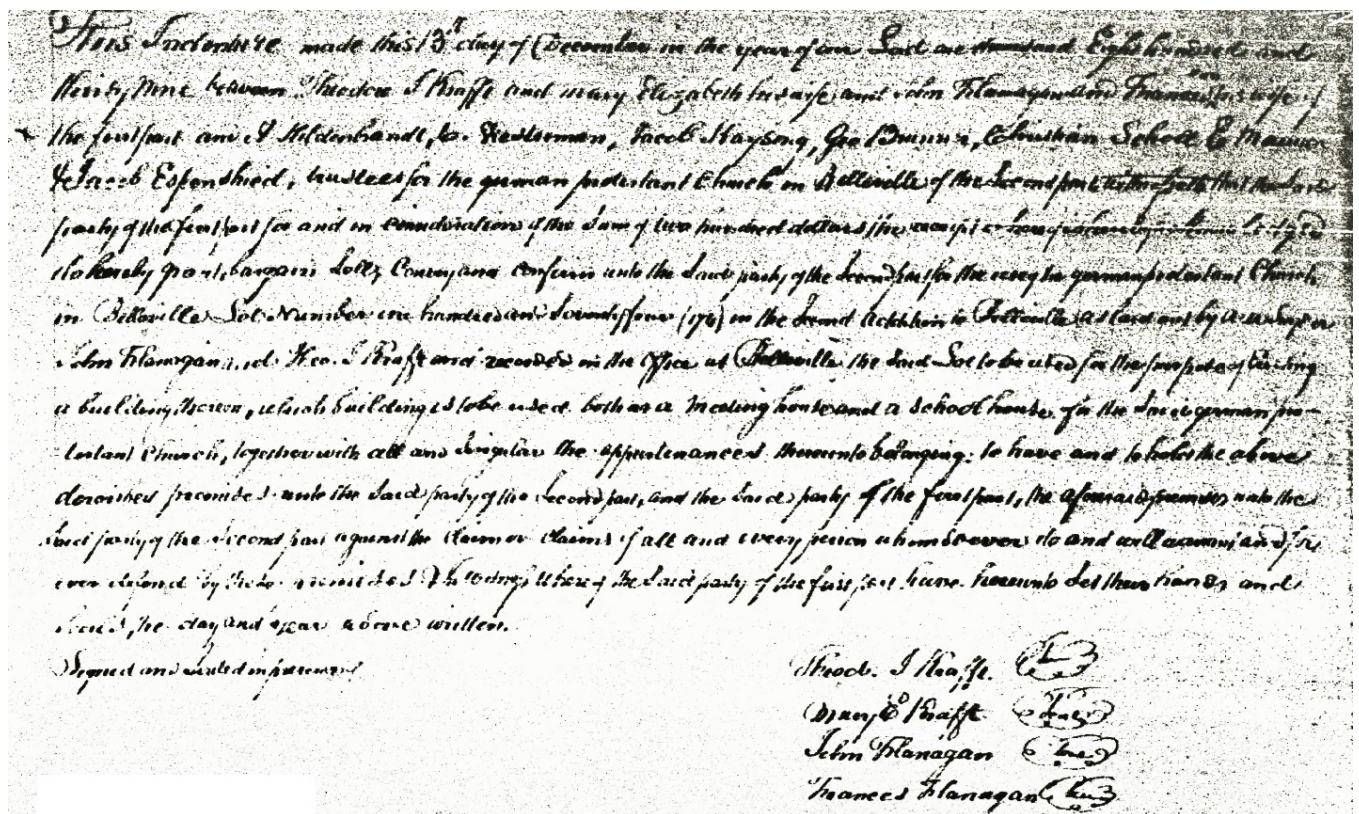 This Indenture made this 13th day of December in the year of our Lord one thousand Eight hundred and
thirty Nine between Theodore J Krafft and mary Elizabeth his wife and John Flanagan and Frances his wife of
the first part and A Hildenbrandt, Westerman, Jacob Knaysong, Geo Bunner, Christian Schott E Maurer
& Jacob Espenshied, trustees for the german protestant Church in Belleville of the Second part witnesseth that the Said
party of the first part for and in consideration of the Sum of two hundred dollars the receipt is hereby
do hereby grant, bargain Sell, Convey and confirm unto the Said party of the Second part for the use of the german protestant Church
in Belleville Lot Number one hundred and Seventy four (174) in the Second Addition to Belleville as laid out by
John Flanagan and Theo. J Krafft and recorded in the Office at Belleville the Said Lot to be used for the purpose of Erecting
a building thereon, which building is to be used both as a meeting house and a School house for the Said german pro-
testant Church, together with all and Singular the appurtenances thereunto belonging. to have and to hold the above
described premises unto the Said party of the Second part, and the Said party of the first part, the aforesaid premises unto the
Said party of the Second part against the claim or claims of all and every person whomsoever do and will warrant and for
ever defend by these In witness Whereof the Said party of the first part have hereunto Set their hands and
Seals, the day and year above written.
Signed and sealed in presence
Theod. J Krafft.
Mary E Krafft
John Flanagan
Frances Flanagan